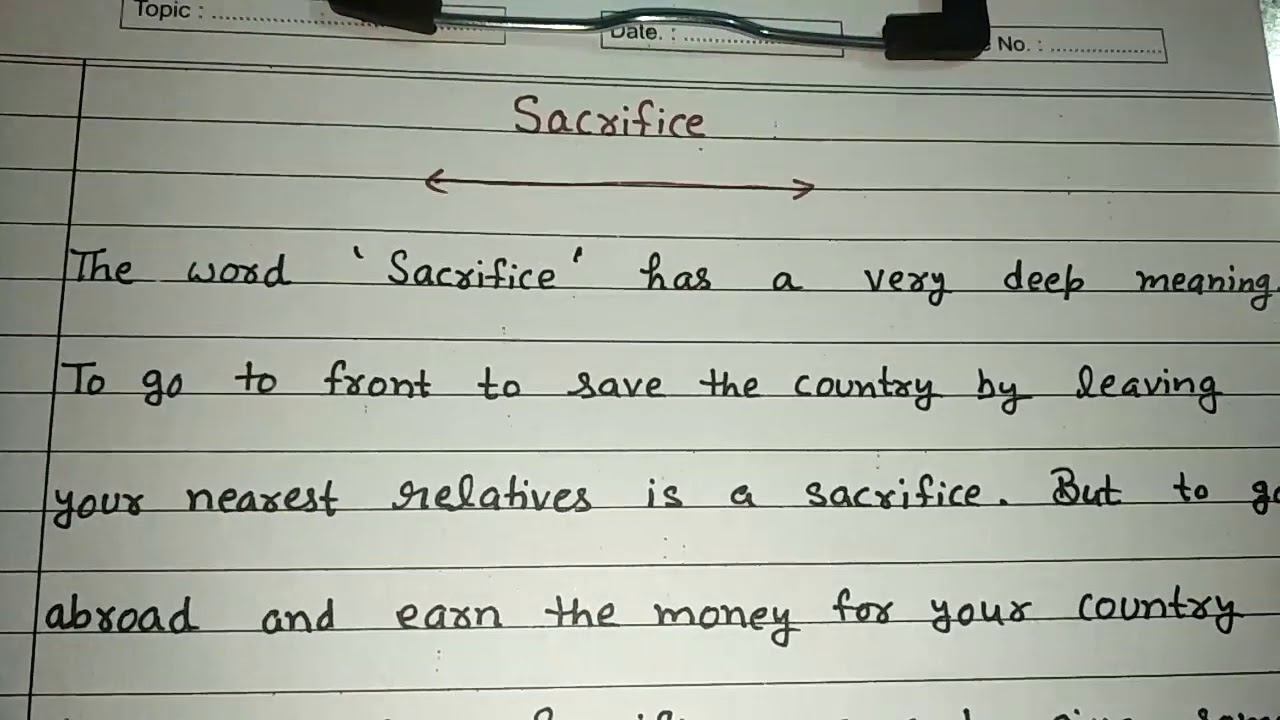 Topic : ........................
Date. : ........................
No. : ........................
Sacrifice
The word 'Sacrifice' has a very deep meaning.
To go to front to save the country by leaving
your nearest relatives is a sacrifice. But to go
abroad and earn the money for your country